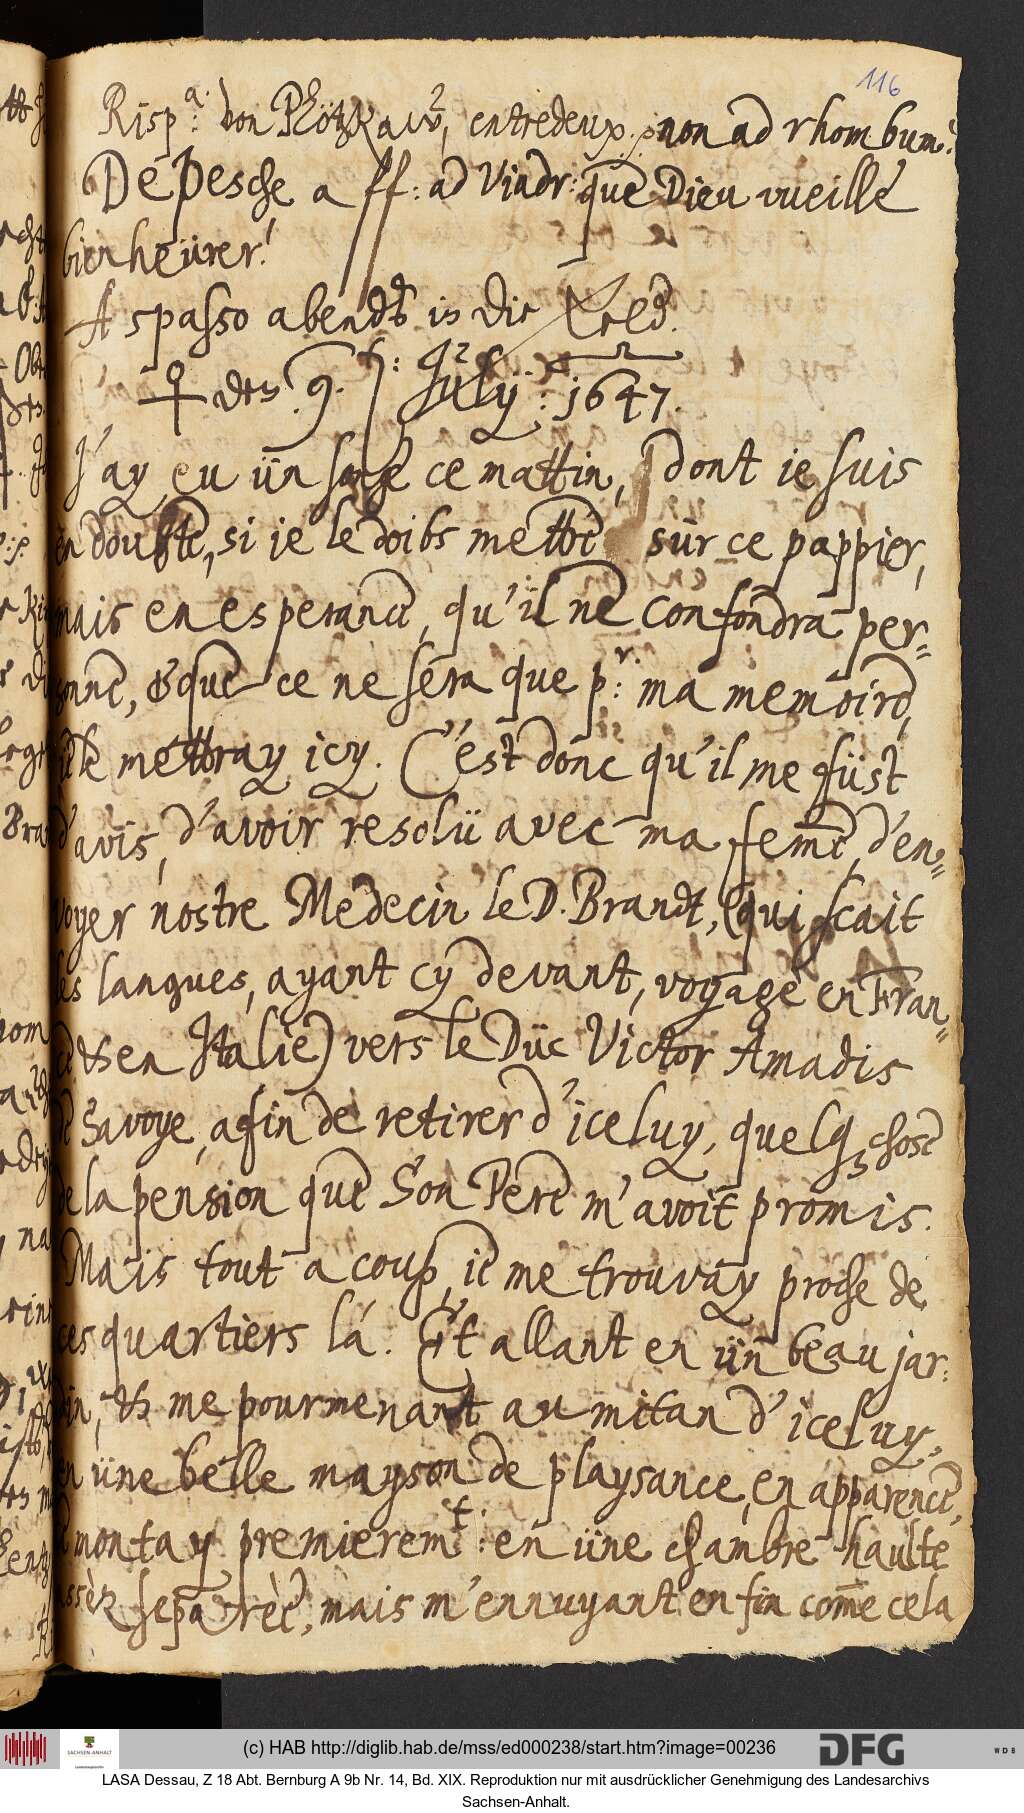 116
Risp.a: von Plötzkaw, entredeux. non ad rhombum.
Depesche a ff: ad Viadr: que Dieu vueille
bien heürer!
A spasso abendts in die
♀ den 9. Julÿ: 1647.
J'ay eu ün songe ce mattin, dont ie suis
en doubte, si je le doibs mettre sür ce pappier,
mais en esperance, qu'il ne confondra per-
sonne, & que ce ne sera que pr: ma memoire,
ie le mettray icy. C'est donc qu'il me füst
d'avis, d'avoir resolü avec ma femme, d'en-
voyer nostre Medecin le D. Brandt, (qui scait
les langues, ayant cy devant, voyagè en Fran-
ce & en Italie) vers le Düc Victor Amadis
de Savoye, afin de retirer d'iceluy, quelq3 chose
de la pension que Son Pere m'avoit promis.
Mais tout a coup, ie me trouvay proche de
ces quartiers là. Et allant en ün beau jar:
din, & me pourmenant au mitan d'iceluy,
en üne belle mayson de playsance, en apparence,
je montay premieremt: en üne chambre haulte
assèz separèe, mais m'ennuyant en fin comme cela
(c) HAB http://diglib.hab.de/mss/ed000238/start.htm?image=00236
SACHSEN-ANHALT
DFG
WDB
LASA Dessau, Z 18 Abt. Bernburg A 9b Nr. 14, Bd. XIX. Reproduktion nur mit ausdrücklicher Genehmigung des Landesarchivs
Sachsen-Anhalt.